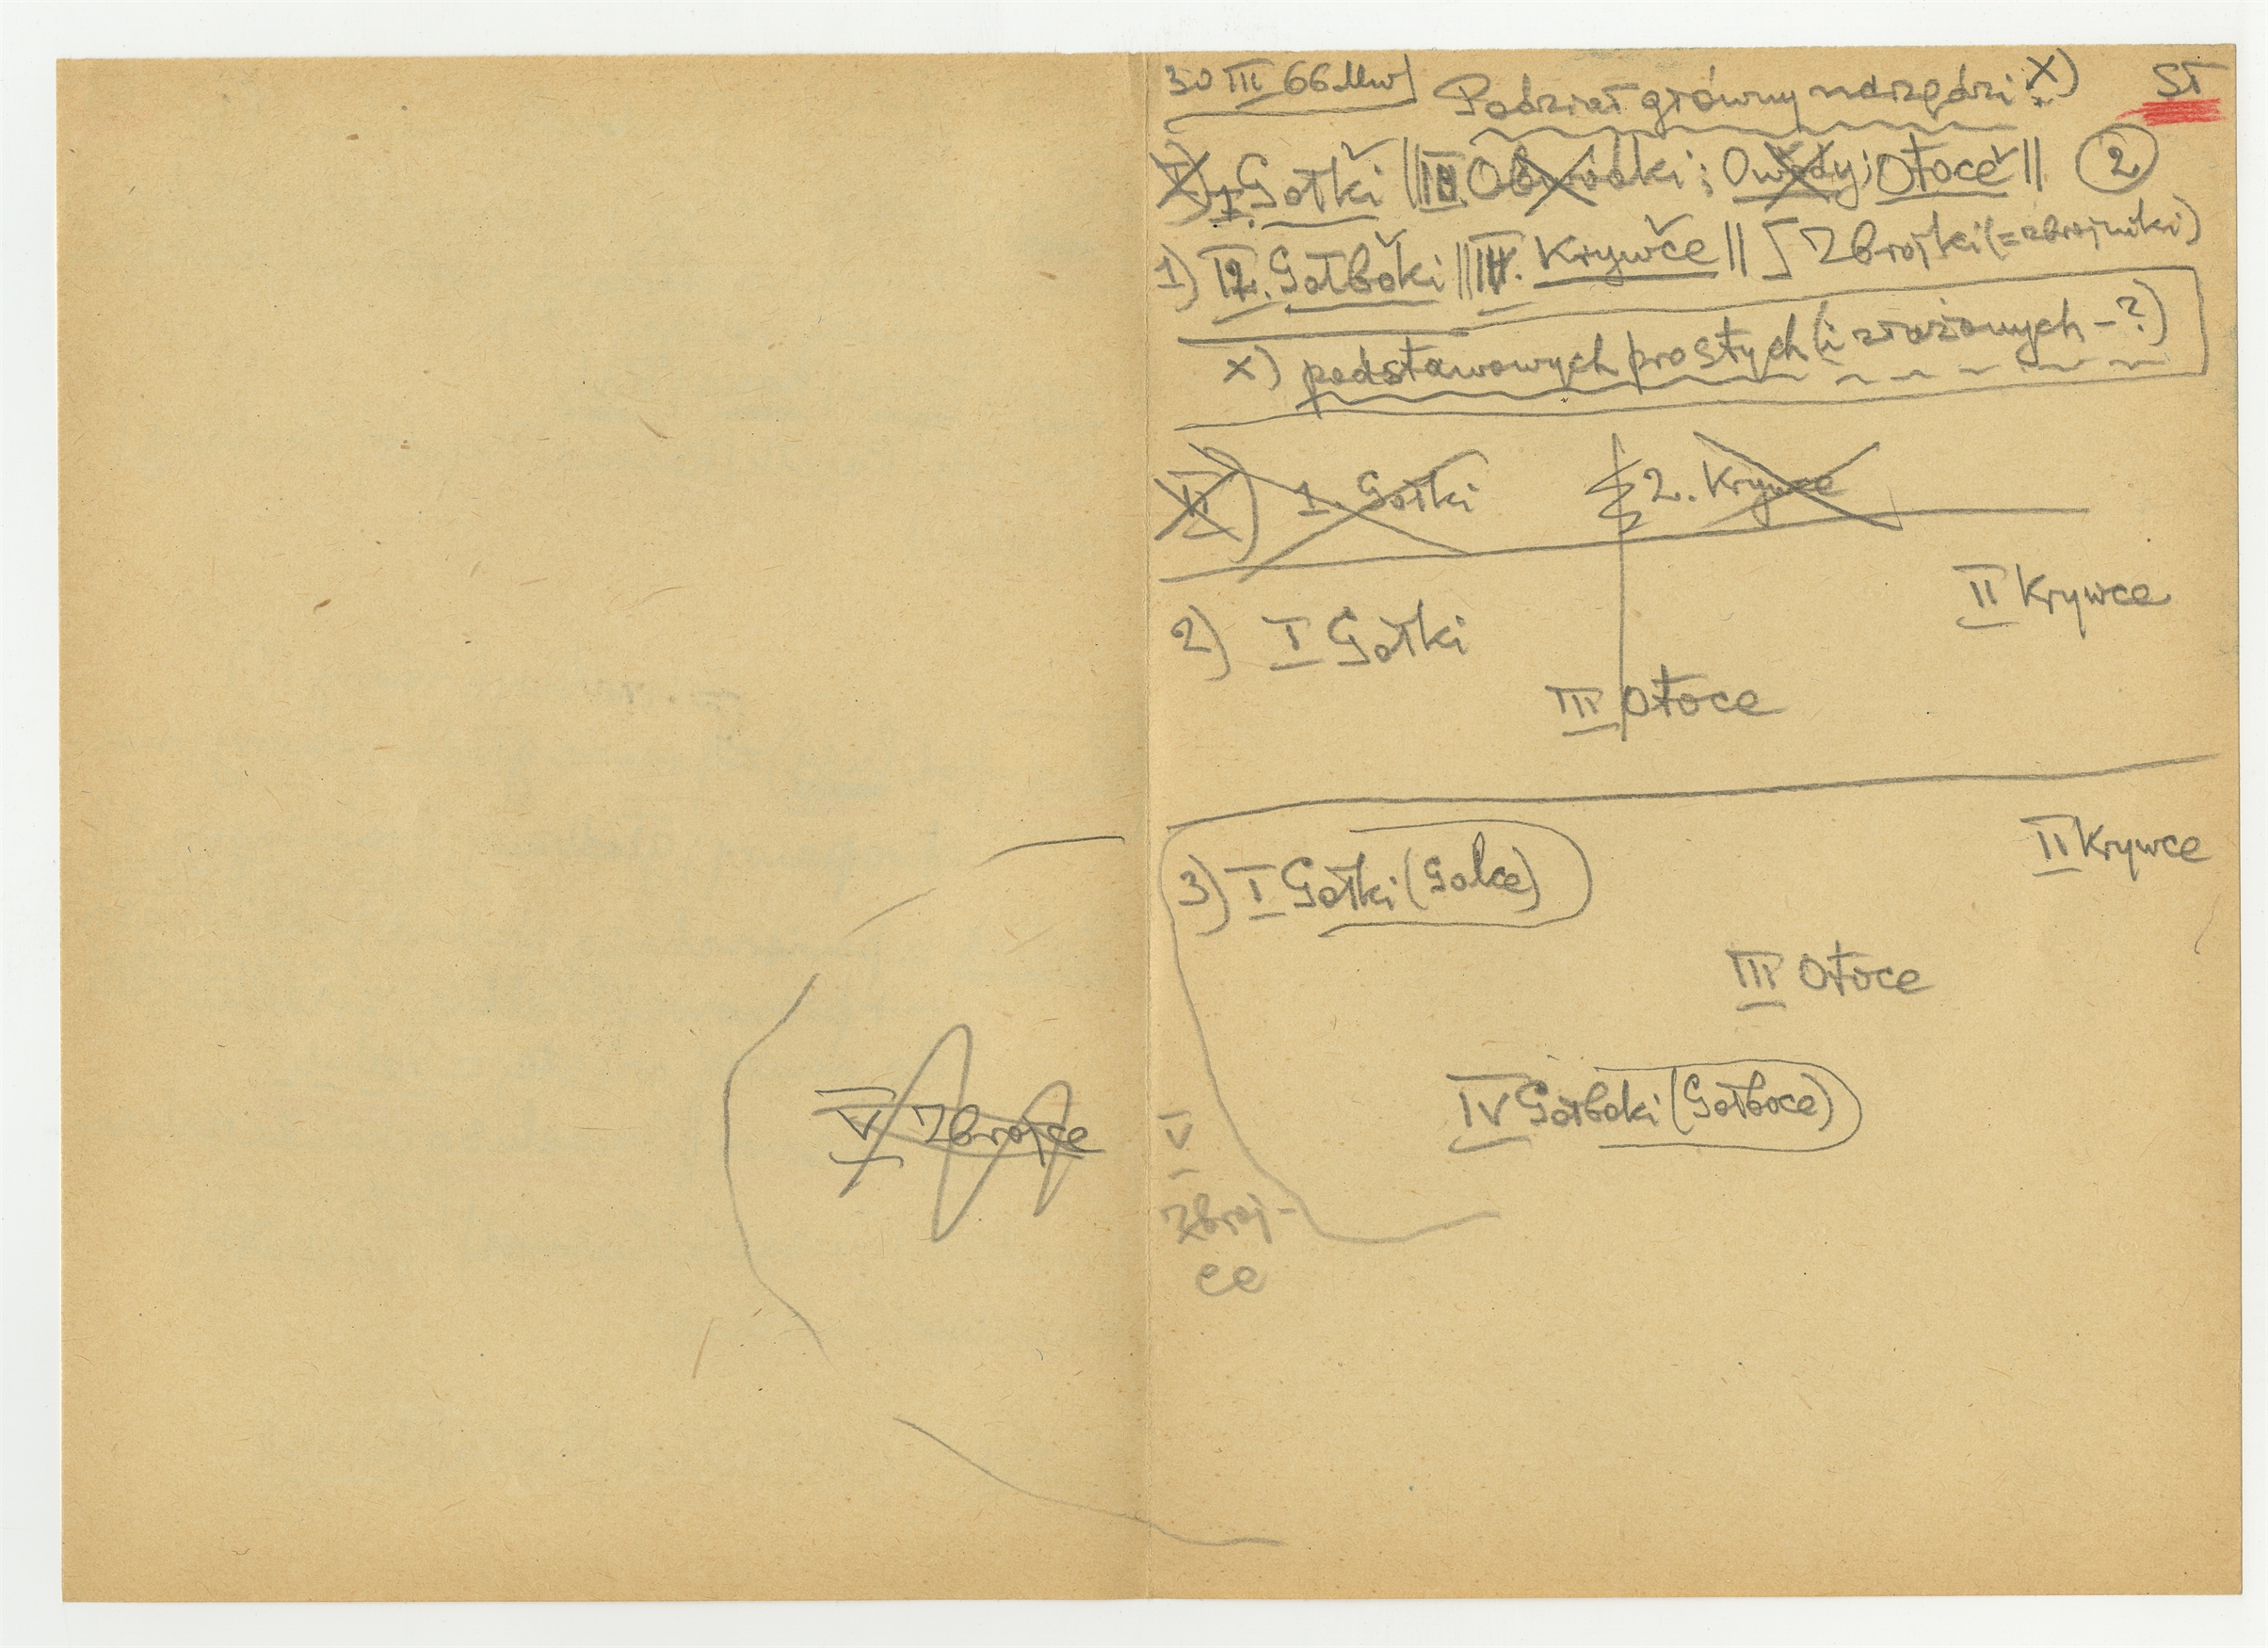 30 III 66 Mw] Podział główny narzędzi x) ST
I. Gołki || III. Obwódki; Owody; Otoce || 2
1) II. Gołboki || IV. Krywce || Zbrojki (=zbrojniki)
x) podstawowych prostych (i złożonych - ?)
II) 1. Gołki 2. Krywce
II Krywce
2) I Gołki
III Otoce
II Krywce
3) I Gołki (Golce)
III Otoce
IV Gołboki (Gołboce)
V Zbrojce
V
Zbroj-
ce